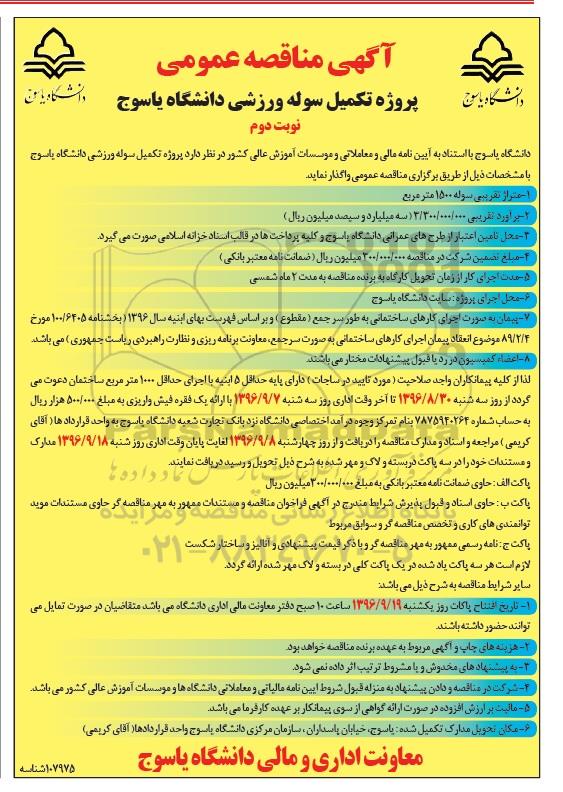 دانشگاه یاسوج
دانشگاه یاسوج
آگهی مناقصه عمومی
پروژه تکمیل سوله ورزشی دانشگاه یاسوج
نوبت دوم
دانشگاه یاسوج با استناد به آیین نامه مالی و معاملاتی و موسسات آموزش عالی کشور در نظر دارد پروژه تکمیل سوله ورزشی دانشگاه یاسوج
با مشخصات ذیل از طریق برگزاری مناقصه عمومی واگذار نماید.
۱-متراژ تقریبی سوله ۱۵۰۰ متر مربع
۲-برآورد تقریبی ۳/۳۰۰/۰۰۰/۰۰۰ ( سه میلیارد و سیصد میلیون ریال )
۳-محل تامین اعتبار از طرح های عمرانی دانشگاه یاسوج و کلیه پرداخت ها در قالب اسناد خزانه اسلامی صورت می گیرد.
۴-مبلغ تضمین شرکت در مناقصه ۳۰۰/۰۰۰/۰۰۰ میلیون ریال ( ضمانت نامه معتبر بانکی )
۵-مدت اجرای کار از زمان تحویل کارگاه به برنده مناقصه به مدت ۲ ماه شمسی
۶-محل اجرای پروژه : سایت دانشگاه یاسوج
۷-پیمان به صورت اجرای کارهای ساختمانی به طور سر جمع ( مقطوع ) و بر اساس فهرست بهای ابنیه سال ۱۳۹۶ ( بخشنامه ۱۰۰/۶۴۰۵ مورخ
۸۹/۲/۴ موضوع انعقاد پیمان اجرای کارهای ساختمانی به صورت سرجمع، معاونت برنامه ریزی و نظارت راهبردی ریاست جمهوری ) می باشد.
۸-اعضاء کمیسیون در رد یا قبول پیشنهادات مختار می باشند.
لذا از کلیه پیمانکاران واجد صلاحیت ( مورد تایید در ساجات ) دارای پایه حداقل ۵ ابنیه با اجرای حداقل ۱۰۰۰ متر مربع ساختمان دعوت می
گردد از روز سه شنبه ۱۳۹۶/۸/۳۰ تا آخر وقت اداری روز سه شنبه ۱۳۹۶/۹/۷ با ارائه یک فقره فیش واریزی به مبلغ ۵۰۰/۰۰۰ هزار ریال
به حساب شماره ۷۸۷۵۹۴۰۲۶۴ بنام تمرکز وجوه درآمد اختصاصی دانشگاه نزد بانک تجارت شعبه دانشگاه یاسوج به واحد قراردادها ( آقای
کریمی ) مراجعه و اسناد و مدارک مناقصه را دریافت و از روز چهارشنبه ۱۳۹۶/۹/۸ لغایت پایان وقت اداری روز شنبه ۱۳۹۶/۹/۱۸ مدارک
و مستندات خود را در سه پاکت دربسته و لاک و مهر شده به شرح ذیل تحویل و رسید دریافت نمایند.
پاکت الف : حاوی ضمانت نامه معتبر بانکی به مبلغ ۳۰۰/۰۰۰/۰۰۰ میلیون ریال
پاکت ب : حاوی اسناد و قبول پذیرش شرایط مندرج در آگهی فراخوان مناقصه و مستندات ممهور به مهر مناقصه گر حاوی مستندات موید
توانمندی های کاری و تخصص مناقصه گر و سوابق مربوط
پاکت ج : نامه رسمی ممهور به مهر مناقصه گر و با ذکر قیمت پیشنهادی و آنالیز و ساختار شکست
لازم است هر سه پاکت یاد شده در یک پاکت کلی در بسته و لاک و مهر شده ارائه گردد.
سایر شرایط مناقصه به شرح ذیل می باشد:
۱- تاریخ افتتاح پاکات روز یکشنبه ۱۳۹۶/۹/۱۹ ساعت ۱۰ صبح دفتر معاونت مالی اداری دانشگاه می باشد متقاضیان در صورت تمایل می
توانند حضور داشته باشند.
۲-هزینه های چاپ و آگهی مربوط به عهده برنده مناقصه خواهد بود.
۳- به پیشنهاد های مخدوش و یا مشروط ترتیب اثر داده نمی شود.
۴-شرکت در مناقصه و دادن پیشنهاد به منزله قبول شروط ایین نامه مالیاتی و معاملاتی دانشگاه ها و موسسات آموزش عالی کشور می باشد.
۵-مالیت بر ارزش افزوده در صورت ارائه گواهی از سوی پیمانکار بر عهده کارفرما می باشد.
۶-مکان تحویل مدارک تکمیل شده : یاسوج، خیابان پاسداران ، سازمان مرکزی دانشگاه یاسوج واحد قراردادها( آقای کریمی)
معاونت اداری و مالی دانشگاه یاسوج
۱۰۷۹۷۵شناسه
ParsNamadData
پایگاه اطلاع رسانی مناقصه و مزایده
۰۲۱-۸۸۳۴۹۶۷۰-۵